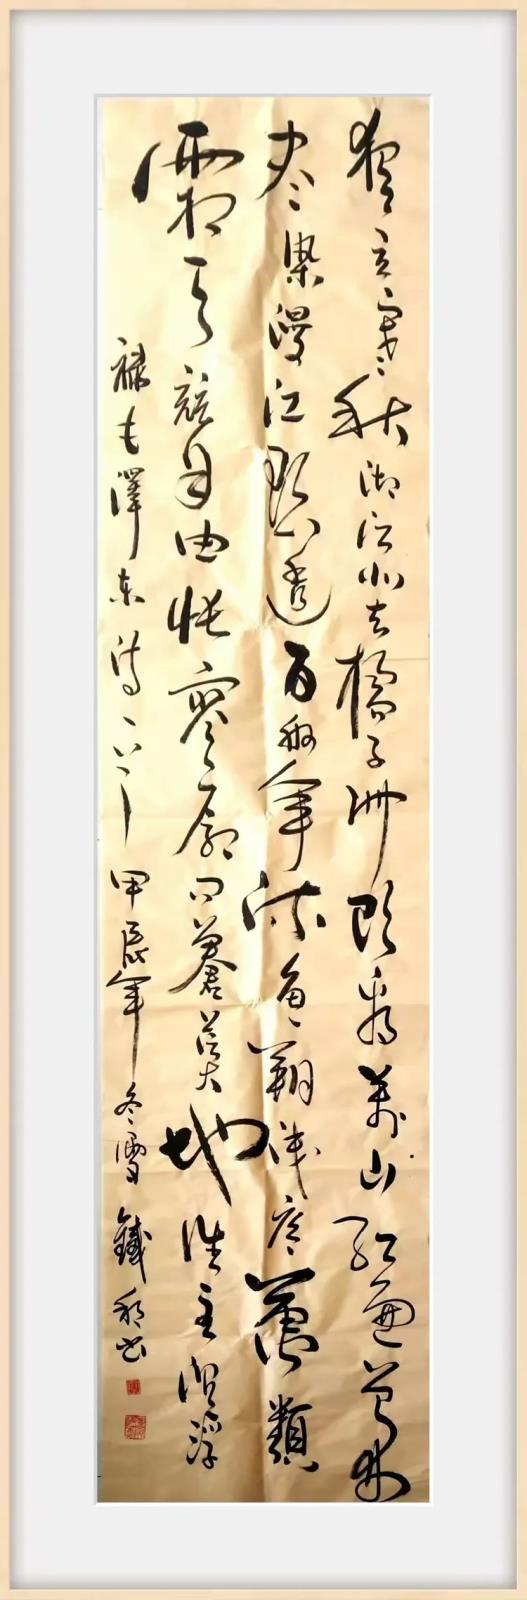 独立寒秋湘江北去橘子洲頭看萬山紅遍層林
尽染漫江碧透百舸争流魚翔浅底萬類
霜天競自由悵寥廓问蒼茫大地誰主沉浮
禄毛澤东詩一首甲辰年冬雪鐵书